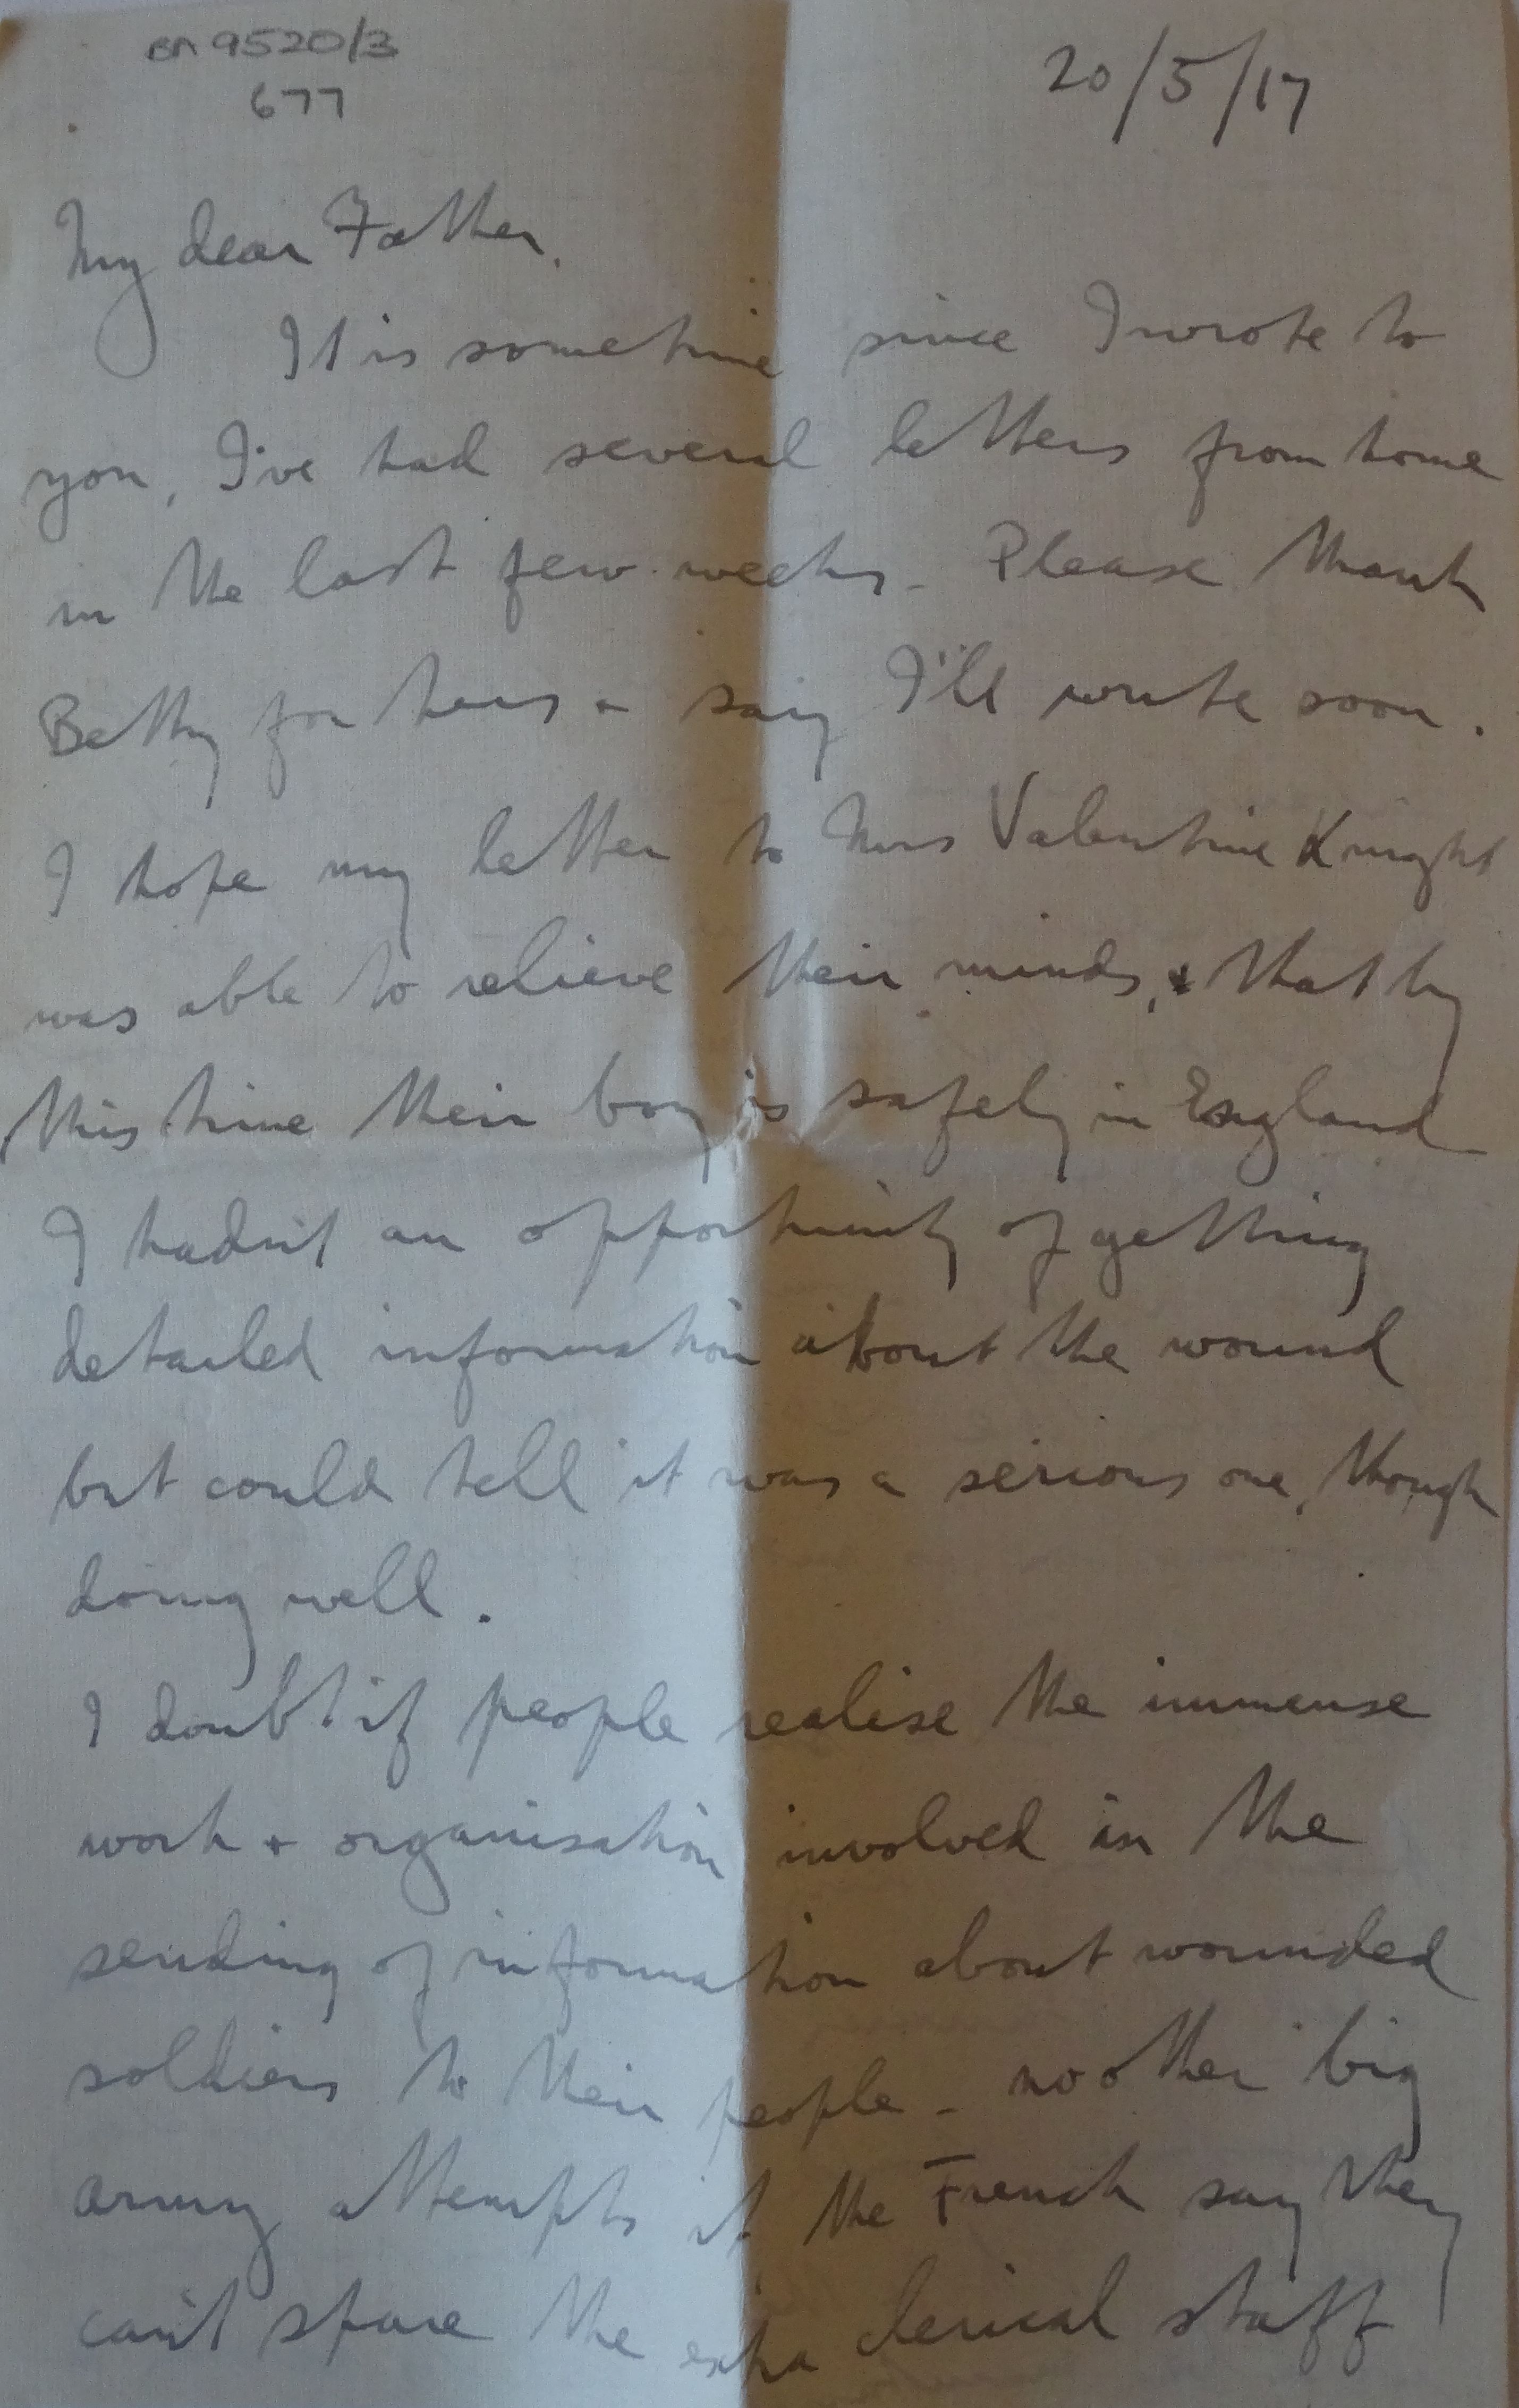 BA 9520/3
677
20/5/17
My dear Father.
It is sometime since I wrote to
you, I've had several letters from home
in the last few weeks - Please thank
Betty for hers + say I'll write soon.
I hope my letter to Mrs Valentine Knight
was able to relieve their minds, & that by
this time their boy is safely in England
I hadn't an opportunity of getting
detailed information about the wound
but could tell it was a serious one, though
doing well.
I doubt if people realise the immense
work + organisation involved in the
sending of information about wounded
soldiers to their people - no other big
army attempts it the French say they
can't spare the extra clerical staff